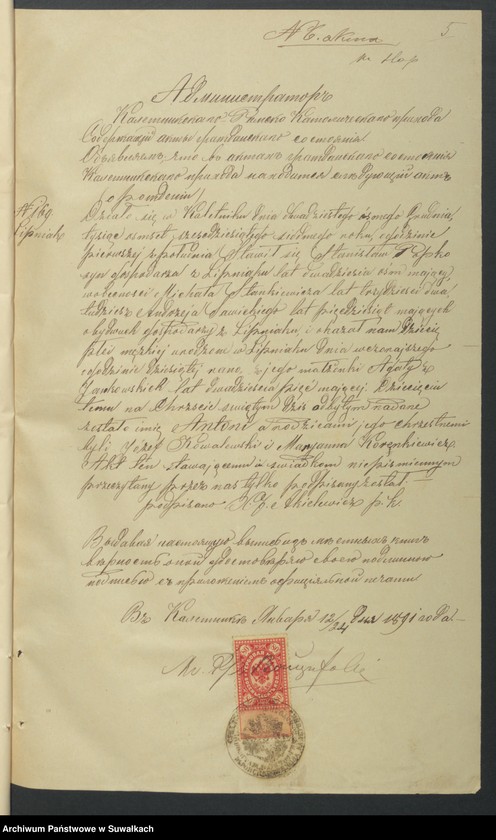 5
Администраторъ
Калетникскаго Римско Католическаго прихода
Содержащій акты гражданскаго состоянія
Объявляетъ что въ актахъ гражданскаго состоянія
Калетникскаго прихода находится слѣдующій актъ
о рожденіи
№ 169
Lipniak
Działo się w Kaletniku dnia dwudziestego ósmego Grudnia,
tysiąc osmset sześćdziesiątego siódmego roku, o godzinie
pierwszy z południa Stawił się Stanisław
syn gospodarza z Lipniaku lat dwadzieścia osm mający,
w obecności Michała Stankiewicza lat trzydzieści dwa,
tudzież Andrzeja Sawickiego lat pięćdziesiąt mających
obydwóch gospodarzy z Lipniaku, i okazał nam Dziecię
płci męzkiej urodzone w Lipniaku Dnia wczorajszego
o godzinie dziesiątej rano, z jego małżonki Agaty z
Jankowskich lat dwadzieścia pięć mającej. Dziecięciu
temu na Chrzcie świętym dziś odbytym nadane
zostało imię Antoni a rodzicami jego chrzestnemi
byli Józef Kowalewski i Maryanna
Akt ten stawającemu i świadkom niepiśmiennym
przeczytany przez nas tylko podpisany został.
podpisano X. J.
Выдавая настоящую выпись
вѣрность оной удостовѣряю своею подписью
съ приложеніемъ оффиціальной печати
Въ Калетникѣ Января 12/24 дня 1891 года